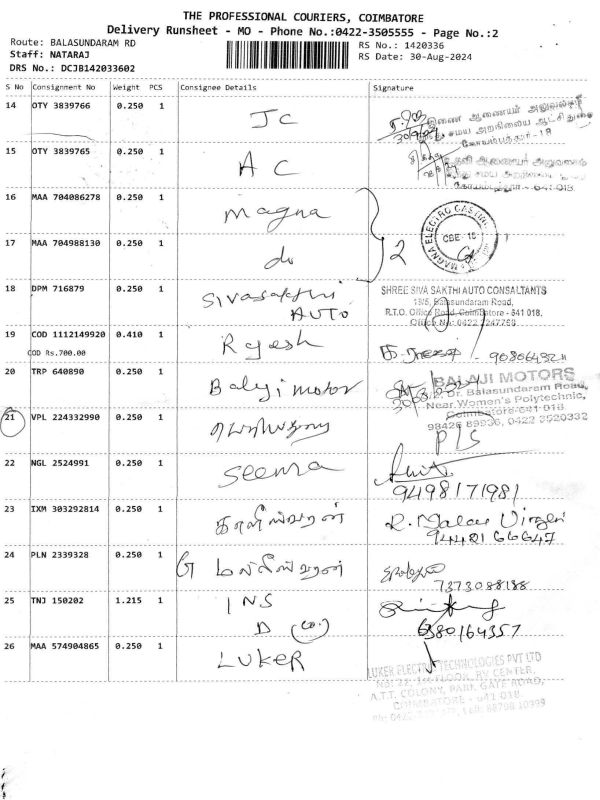 THE PROFESSIONAL COURIERS, COIMBATORE
Delivery Runsheet - MO - Phone No.:0422-3505555 - Page No.:2
Route: BALASUNDARAM RD
RS No.: 1420336
Staff: NATARAJ
RS Date: 30-Aug-2024
DRS No.: DCJB142033602
S No Consignment No Weight PCS Consignee Details Signature
14 OTY 3839766 0.250 1 JC
இணை ஆணையர் அலுவலகம்
சமய அறநிலைய ஆட்சி துறை
15 OTY 3839765 0.250 1 A C
16 MAA 704086278 0.250 1 Magna
MAGNA ELECTRO CASTING
CBE - 18
17 MAA 704988130 0.250 1 do 2
18 DPM 716879 0.250 1 Sivasakthi
AUTO
SHREE SIVA SAKTHI AUTO CONSALTANTS
18/5, Balasundaram Road,
R.T.O. Office Road, Coimbatore - 641 018.
Office No: 0422 2247768
19 COD 1112149920 0.410 1 Rajesh
COD Rs.700.00
20 TRP 640890 0.250 1 Balaji motor
BALAJI MOTORS
2, Dr. Balasundaram Road,
Near Women's Polytechnic,
Coimbatore-641 018
98426 89936, 0422 2520332
21 VPL 224332990 0.250 1 PLS
22 NGL 2524991 0.250 1 Seema
9498171981
23 IXM 303292814 0.250 1 காளீஸ்வரன்
24 PLN 2339328 0.250 1
7373088188
25 TNJ 150202 1.215 1 INS
D (co.)
6380164357
26 MAA 574904865 0.250 1 LUKER
LUKER ELECTRIC TECHNOLOGIES PVT LTD
A.T.T. COLONY, PARK GATE ROAD,
COIMBATORE - 641 018.